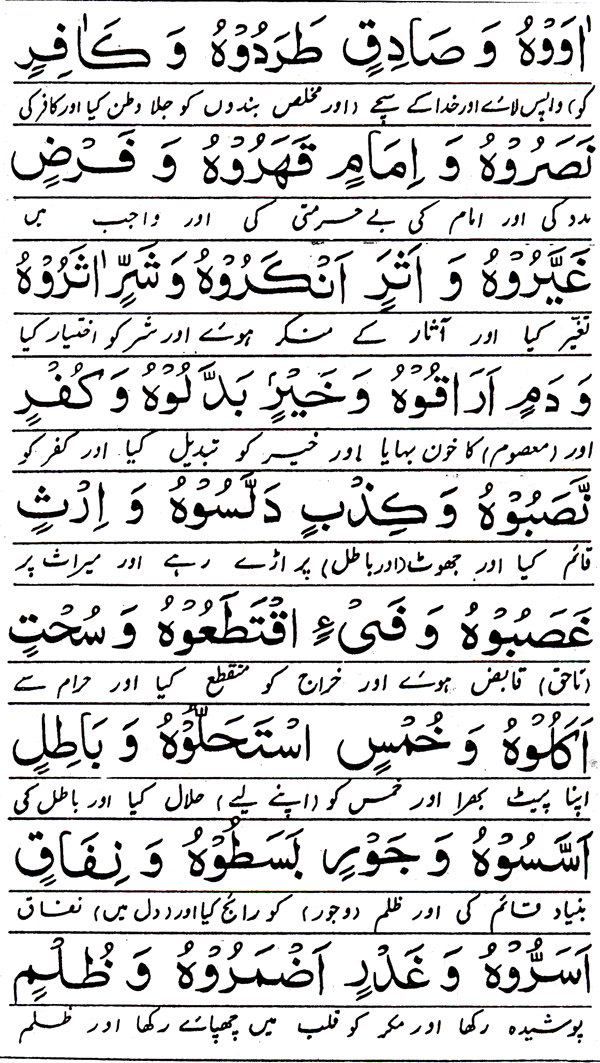 اٰوَوْهُ وَ صَادِقٍ طَرَدُوْهُ وَ كَافِرٍ
کو) واپس لائے اور خدا کے سچے (اور مخلص بندوں کو جلا وطن کیا اور کافر کی
نَصَرُوْهُ وَ اِمَامٍ قَهَرُوْهُ وَ فَرْضٍ
مدد کی اور امام کی بے حرمتی کی اور واجب میں
غَيَّرُوْهُ وَ اَثَرٍ اَنْكَرُوْهُ وَ شَرٍّ اٰثَرُوْهُ
تغیّر کیا اور آثار کے منکر ہوئے اور شر کو اختیار کیا
وَ دَمٍ اَرَاقُوْهُ وَ خَيْرٍ بَدَّلُوْهُ وَ كُفْرٍ
اور (معصوم) کا خون بہایا اور خیر کو تبدیل کیا اور کفر کو
نَّصَبُوْهُ وَ كِذْبٍ دَلَّسُوْهُ وَ اِرْثٍ
قائم کیا اور جھوٹ (اور باطل) پر اڑے رہے اور میراث پر
غَصَبُوْهُ وَ فَیْءٍ اقْتَطَعُوْهُ وَ سُحْتٍ
(ناحق) قابض ہوئے اور خراج کو منقطع کیا اور حرام سے
اَكَلُوْهُ وَ خُمْسٍ اسْتَحَلُّوْهُ وَ بَاطِلٍ
اپنا پیٹ بھرا اور خمس کو (اپنے لیے) حلال کیا اور باطل کی
اَسَّسُوْهُ وَ جَوْرٍ بَسَطُوْهُ وَ نِفَاقٍ
بنیاد قائم کی اور ظلم (و جور) کو رائج کیا اور (دل میں) نفاق
اَسَرُّوْهُ وَ غَدْرٍ اَضْمَرُوْهُ وَ ظُلْمٍ
پوشیدہ رکھا اور مکر کو قلب میں چھپائے رکھا اور ظلم